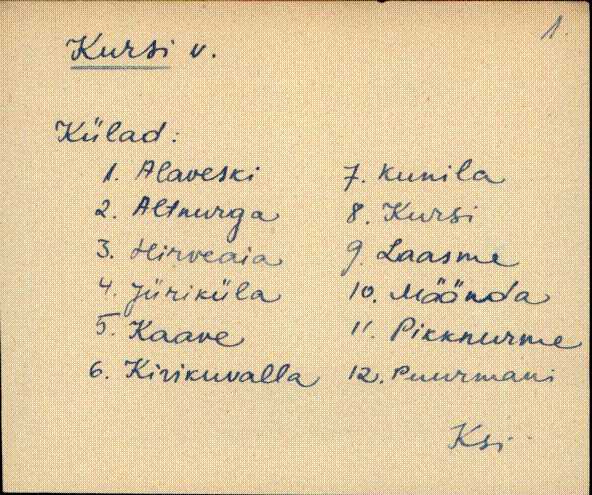 1.
Kursi v.
Külad:
1. Alaveski
2. Altnurga
3. Hirveaia
4. Jüriküla
5. Kaave
6. Kirikuvalla
7. Kunila
8. Kursi
9. Laasme
10. Möönda
11. Pikknurme
12. Puurmani
Ksi